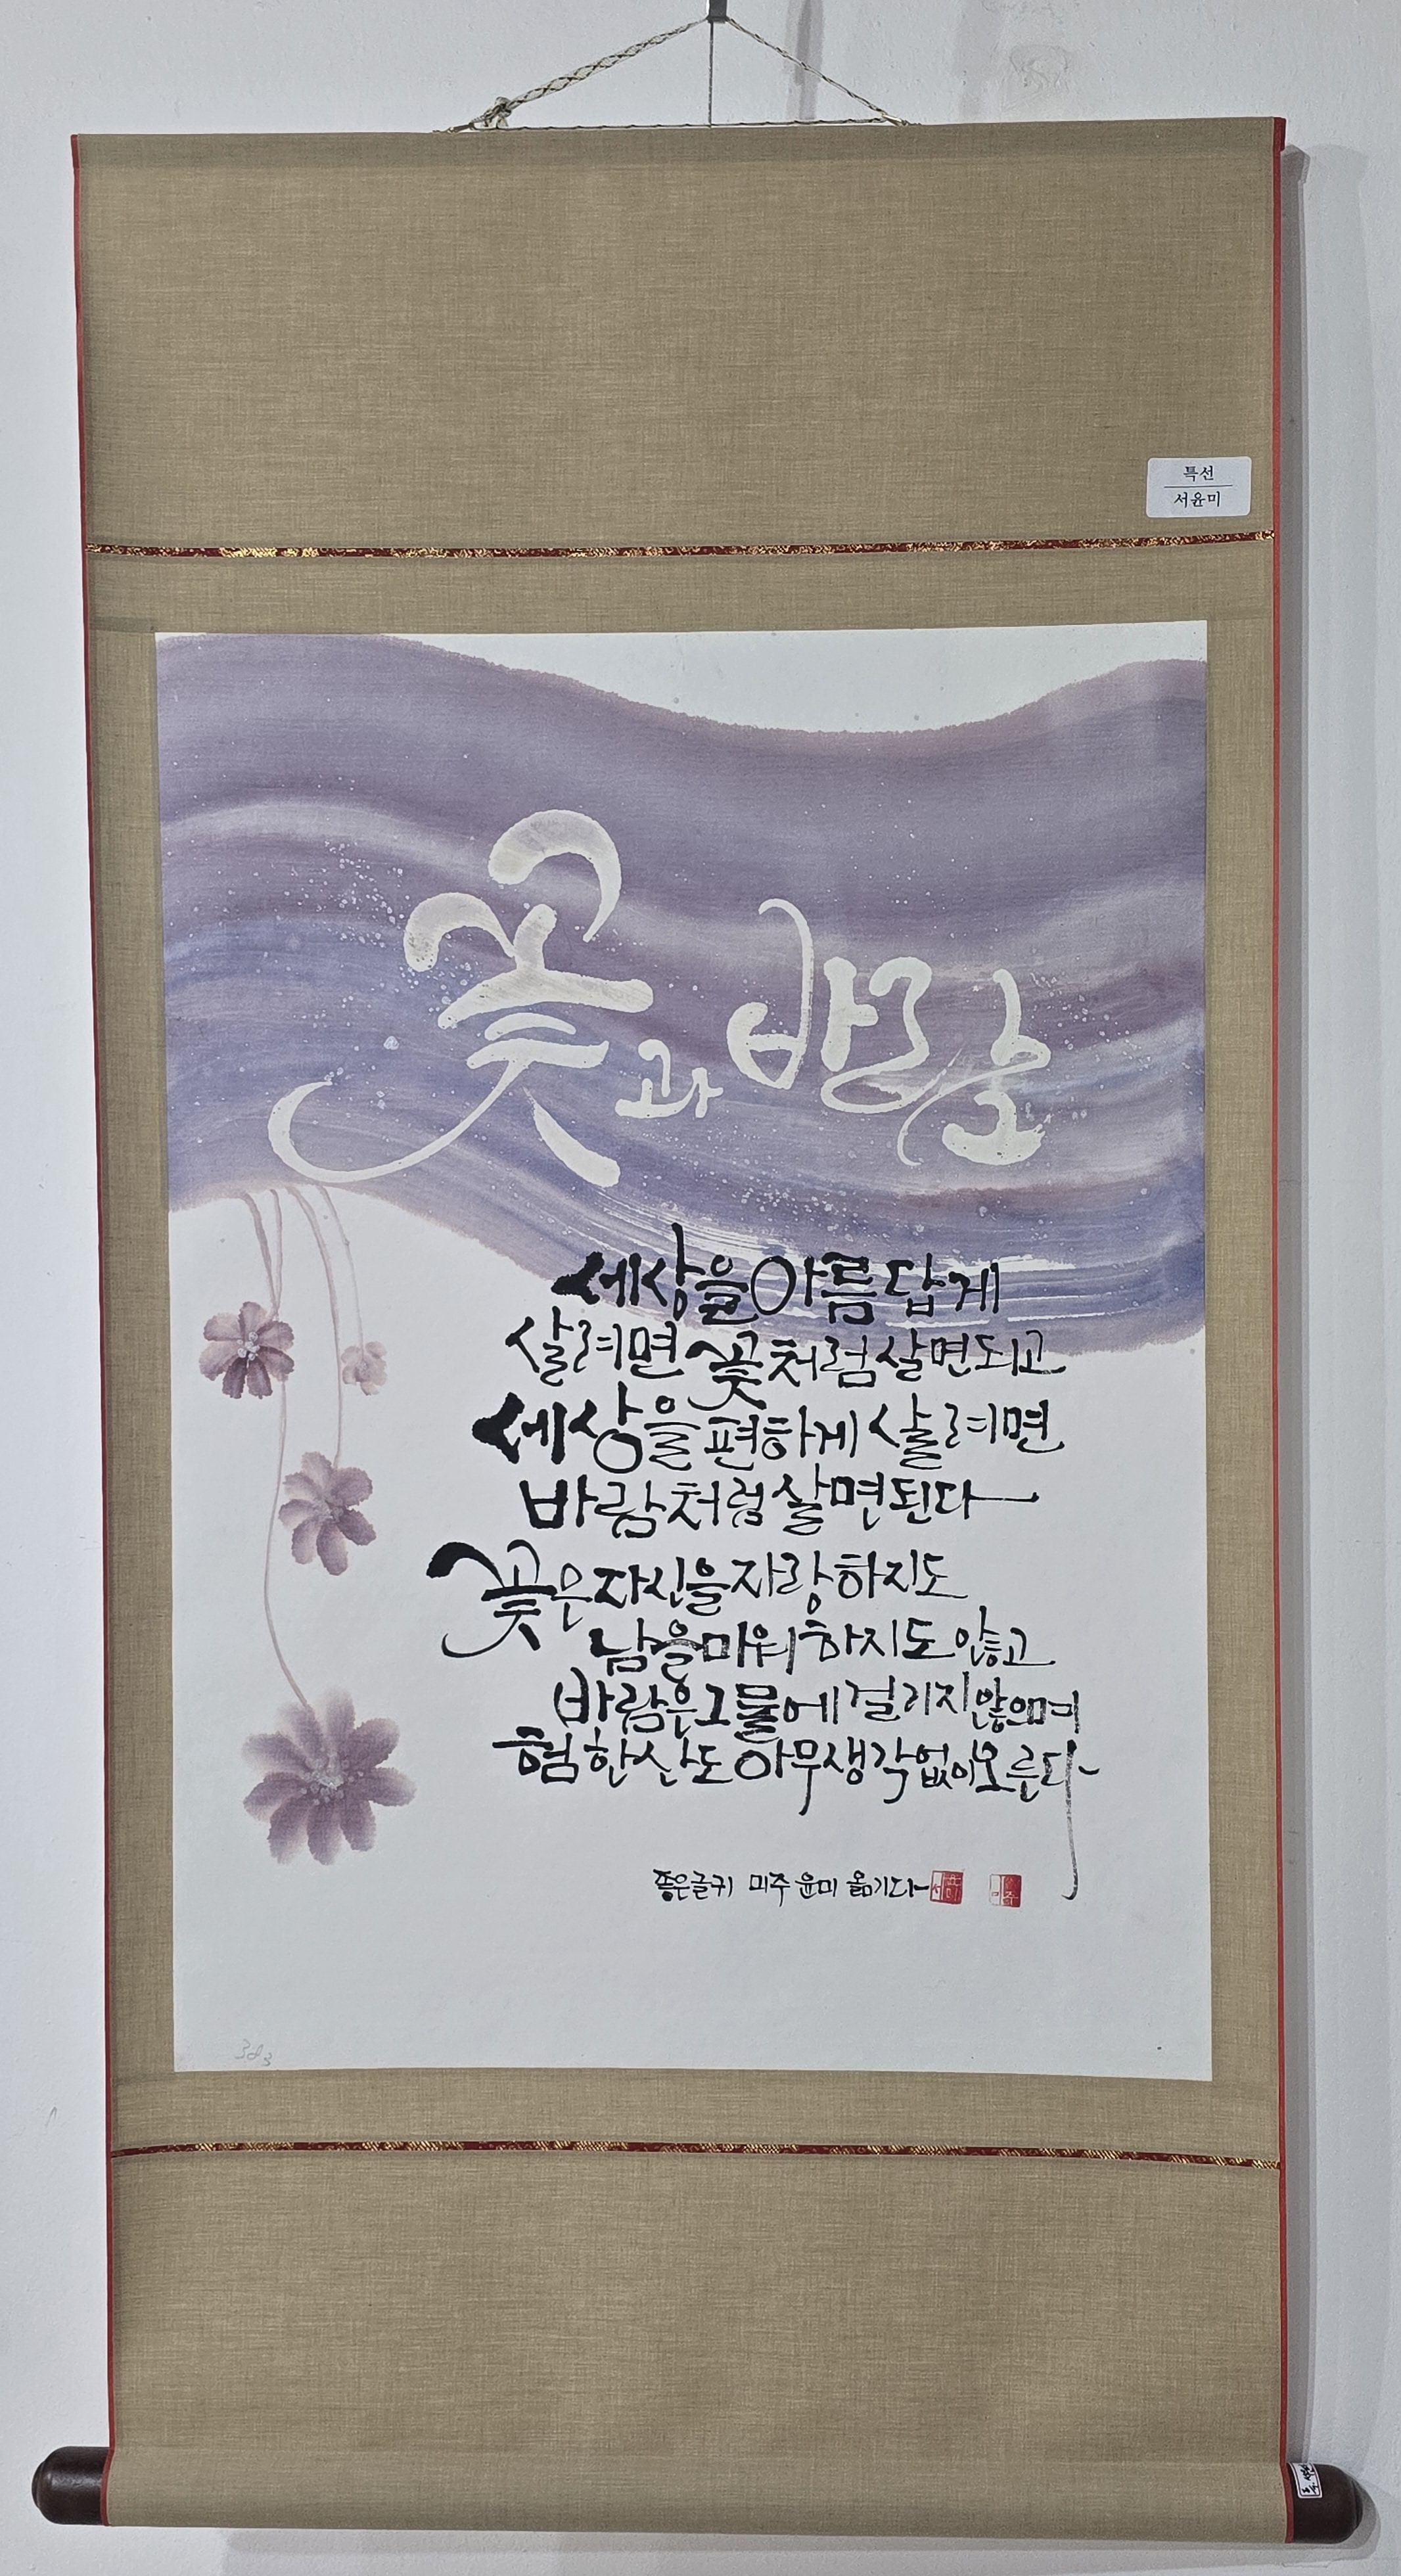 특선
서윤미
꽃과 바람
세상을 아름답게
살려면 꽃처럼 살면 되고
세상을 편하게 살려면
바람처럼 살면 된다
꽃은 자신을 자랑하지도
남을 미워하지도 않고
바람은 그물에 걸리지 않으며
험한 산도 아무 생각 없이 오른다
좋은글귀 미주 윤미 옮기다
383